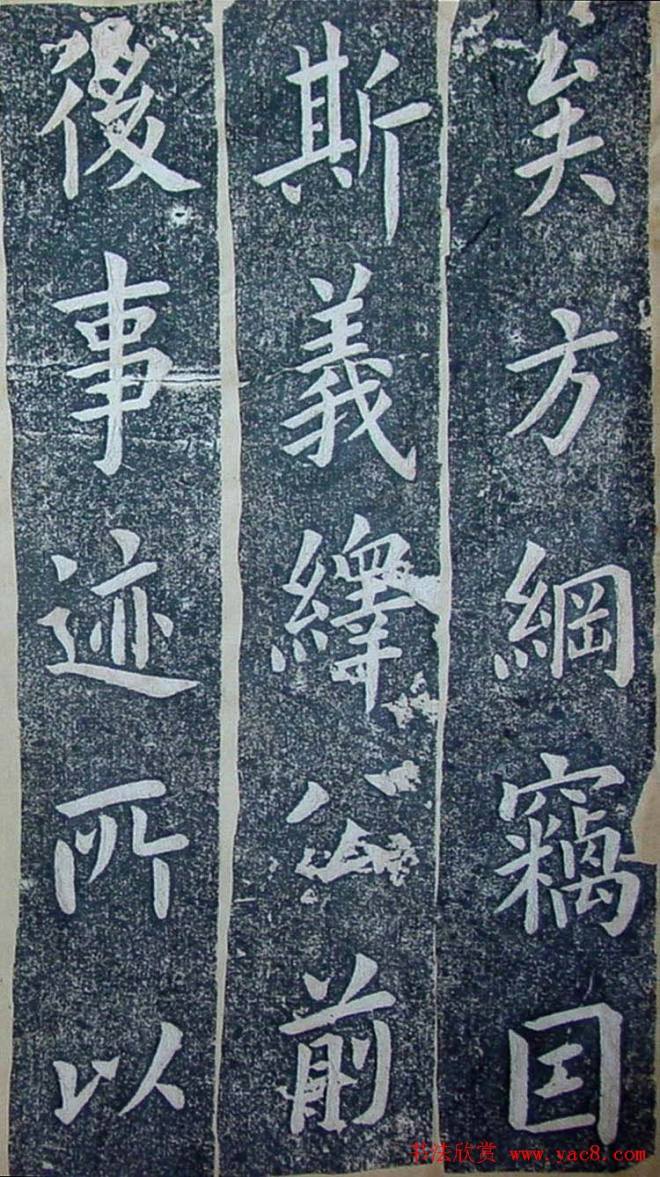 矣方綱竊因
斯義繹公前
後事迹所以
书法欣赏 www.yac8.com